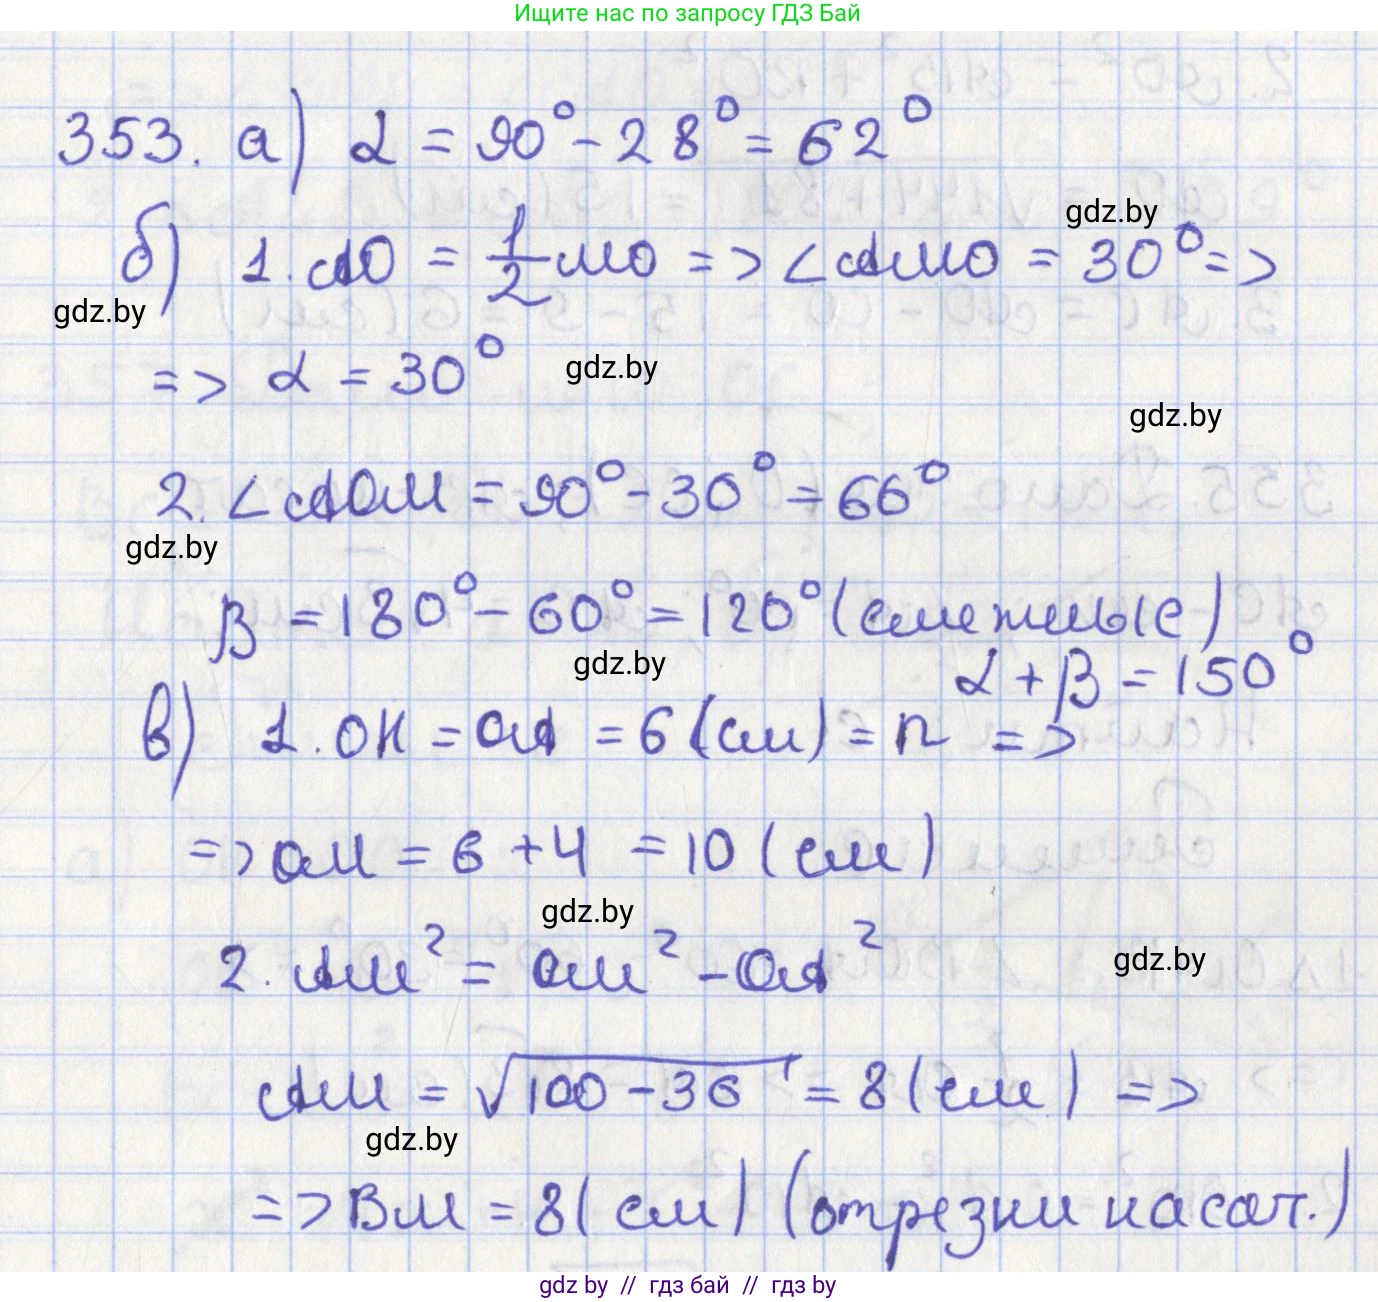 Ищите нас по запросу ГДЗ Бай
353. а) α = 90° - 28° = 62°
gdz.by
б) 1. AO = 1/2 MO => ∠AMO = 30° =>
gdz.by
=> α = 30°
gdz.by
gdz.by
2. ∠AOM = 90° - 30° = 60°
gdz.by
β = 180° - 60° = 120° (смежные)
gdz.by
α + β = 150°
в) 1. OK = OA = 6 (см) = r =>
=> OM = 6 + 4 = 10 (см)
gdz.by
2. AM² = OM² - OA²
gdz.by
AM = √100 - 36 = 8 (см) =>
gdz.by
=> BM = 8 (см) (отрезки касат.)
gdz by // гдз бай // гдз by